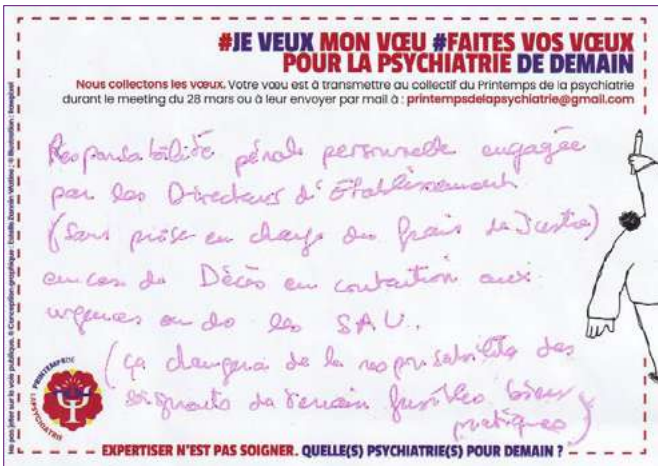 #JE VEUX MON VŒU #FAITES VOS VŒUX
POUR LA PSYCHIATRIE DE DEMAIN
Nous collectons les vœux. Votre vœu est à transmettre au collectif du Printemps de la psychiatrie
durant le meeting du 28 mars ou à leur envoyer par mail à : printempsdelapsychiatrie@gmail.com
Responsabilité pénale personnelle engagée
par les Directeurs d'Établissement
(sans prise en charge des frais de Justice)
en cas de Décès en contention aux
urgences ou ds les SAU.
(ça changera de la responsabilité des
soignants de terrain fusibles biens
pratiques)
PRINTEMPS DE
LA PSYCHIATRIE
EXPERTISER N'EST PAS SOIGNER. QUELLE(S) PSYCHIATRIE(S) POUR DEMAIN ?
Ne pas jeter sur la voie publique. © Conception graphique : Estelle